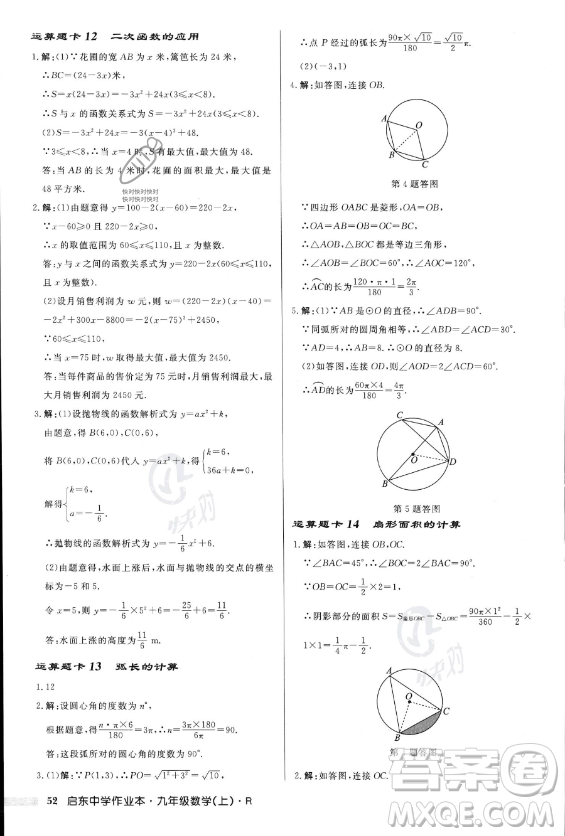 运算题卡 12 二次函数的应用
1.解:(1)∵花圃的宽 AB 为 x 米,篱笆长为 24 米,
∴BC=(24-3x)米.
∴S=x(24-3x)=-3x²+24x(3≤x<8).
∴S 与 x 的函数关系式为 S=-3x²+24x(3≤x<8).
(2)S=-3x²+24x=-3(x-4)²+48.
∵3≤x<8,∴当 x=4 时,S 有最大值,最大值为 48.
答:当 AB 的长为 4 米时,花圃的面积最大,最大值是
48 平方米.
2.解:(1)由题意得 y=100-2(x-60)=220-2x.
∵x-60≥0 且 220-2x≥0,
∴x 的取值范围为 60≤x≤110.
答:y 与 x 之间的函数关系式为 y=220-2x(60≤x≤
110).
(2)设月销售利润为 w 元,由题意得 w=(x-40)(220-2x)=
-2x²+300x-8800=-2(x-75)²+2450,
∵60≤x≤110,
∴当 x=75 时,w 取最大值,最大值为 2450.
答:当每件商品的售价定为 75 元时,月销售利润最大,最
大月销售利润为 2450 元.
3.解:(1)设抛物线的函数解析式为 y=ax²+k,
由题意,得 B(6,0),C(0,6).
将 B(6,0),C(0,6)代入 y=ax²+k,得{k=6, 36a+k=0,
解得{k=6, a=-1/6.
∴抛物线的函数解析式为 y=-1/6x²+6.
(2)由题意得:水面上涨后,水面与抛物线的交点的横坐
标为-5 和 5.
令 x=5,则 y=-1/6×5²+6=-25/6+6=11/6,
答:水面上涨的高度为11/6 m.
运算题卡 13 弧长的计算
1.12
2.解:设圆心角的度数为 n°,
根据题意,得 n·π×6/180=3π×180/6,∴n=90.
答:这段弧所对的圆心角的度数为 90°.
3.(1)解:∵P(-1,3),∴OP=√1²+3²=√10.
∴点 P 经过的弧长为90π×√10/180=√10/2π.
(2)(-3,1)
4.解:如答图,连接 OB.
A
O
B
C
第 4 题答图
∵四边形 OABC 是菱形,∴OA=AB=BC=OC.
∴OA=AB=OB=BC=OC.
∴△AOB,△BOC 是等边三角形.
∴∠AOB=∠BOC=60°.∴∠AOC=120°.
∴AC的长为120·π·1/180=2π/3.
5.解:(1)∵AB 是⊙O 的直径,∴∠ADB=90°.
∵同弧所对的圆周角相等,∴∠ABD=∠ACD=30°.
∵AD=4,∴AB=8.∴⊙O 的直径为 8.
(2)如答图,连接 OD,则∠AOD=2∠ACD=60°.
∴AD的长为60π×4/180=4π/3.
C
A
O
D
B
第 5 题答图
运算题卡 14 扇形面积的计算
1.解:如答图,连接 OB,OC.
∵∠BAC=45°,∴∠BOC=90°.
∴阴影部分的面积=S扇形OBC-S△OBC=90π×1²/360-1/2×
1×1=π/4-1/2.
A
O
C
B
题答图
2.解:(1)如答图,连接 OC.
快对快对快对
快对快对快对
快对
52 启东中学作业本·九年级数学(上)·R